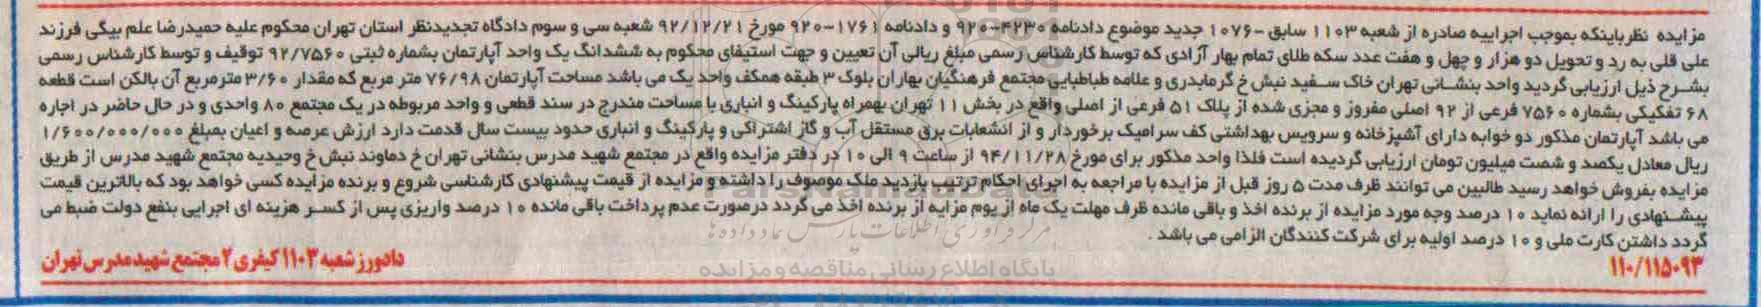 مزایده نظرباینکه بموجب اجراییه صادره از شعبه ۱۱۰۳ سابق -۱۰۷۶ جدید موضوع دادنامه ۴۲۳۰-۹۲۰ و دادنامه ۱۷۶۱-۹۲۰ مورخ ۹۲/۱۲/۲۱ شعبه سی و سوم دادگاه تجدیدنظر استان تهران محکوم علیه حمیدرضا علم بیگی فرزند
علی قلی به رد و تحویل دو هزار و چهل و هفت عدد سکه طلای تمام بهار آزادی که توسط کارشناس رسمی مبلغ ریالی آن تعیین و جهت استیفای محکوم به ششدانگ یک واحد آپارتمان بشماره ثبتی ۹۲/۷۵۶۰ توقیف و توسط کارشناس رسمی
بشرح ذیل ارزیابی گردید واحد بنشانی تهران خاک سفید نبش خ گرمابدری و علامه طباطبایی مجتمع فرهنگیان بهاران بلوک ۳ طبقه همکف واحد یک می باشد مساحت آپارتمان ۷۶/۹۸ متر مربع که مقدار ۳/۶۰ مترمربع آن بالکن است قطعه
۶۸ تفکیکی بشماره ۷۵۶۰ فرعی از ۹۲ اصلی مفروز و مجزی شده از پلاک ۵۱ فرعی از اصلی واقع در بخش ۱۱ تهران بهمراه پارکینگ و انباری با مساحت مندرج در سند قطعی و واحد مربوطه در یک مجتمع ۸۰ واحدی و در حال حاضر در اجاره
می باشد آپارتمان مذکور دو خوابه دارای آشپزخانه و سرویس بهداشتی کف سرامیک برخوردار و از انشعابات برق مستقل آب و گاز اشتراکی و پارکینگ و انباری حدود بیست سال قدمت دارد ارزش عرصه و اعیان بمبلغ ۱/۶۰۰/۰۰۰/۰۰۰
ریال معادل یکصد و شصت میلیون تومان ارزیابی گردیده است فلذا واحد مذکور برای مورخ ۹۴/۱۱/۲۸ از ساعت ۹ الی ۱۰ در دفتر مزایده واقع در مجتمع شهید مدرس بنشانی تهران خ دماوند نبش خ وحیدیه مجتمع شهید مدرس از طریق
مزایده بفروش خواهد رسید طالبین می توانند ظرف مدت ۵ روز قبل از مزایده با مراجعه به اجرای احکام ترتیب بازدید ملک موصوف را داشته و مزایده از قیمت پیشنهادی کارشناسی شروع و برنده مزایده کسی خواهد بود که بالاترین قیمت
پیشنهادی را ارائه نماید ۱۰ درصد وجه مورد مزایده از برنده اخذ و باقی مانده ظرف مهلت یک ماه از یوم مزایه از برنده اخذ می گردد درصورت عدم پرداخت باقی مانده ۱۰ درصد واریزی پس از کسر هزینه ای اجرایی بنفع دولت ضبط می
گردد داشتن کارت ملی و ۱۰ درصد اولیه برای شرکت کنندگان الزامی می باشد .
مرکز فرآوری اطلاعات پارس نماد داده ها
پایگاه اطلاع رسانی مناقصه و مزایده
۱۱۰/۱۱۵۰۹۳
دادورز شعبه ۱۱۰۳ کیفری ۲ مجتمع شهید مدرس تهران